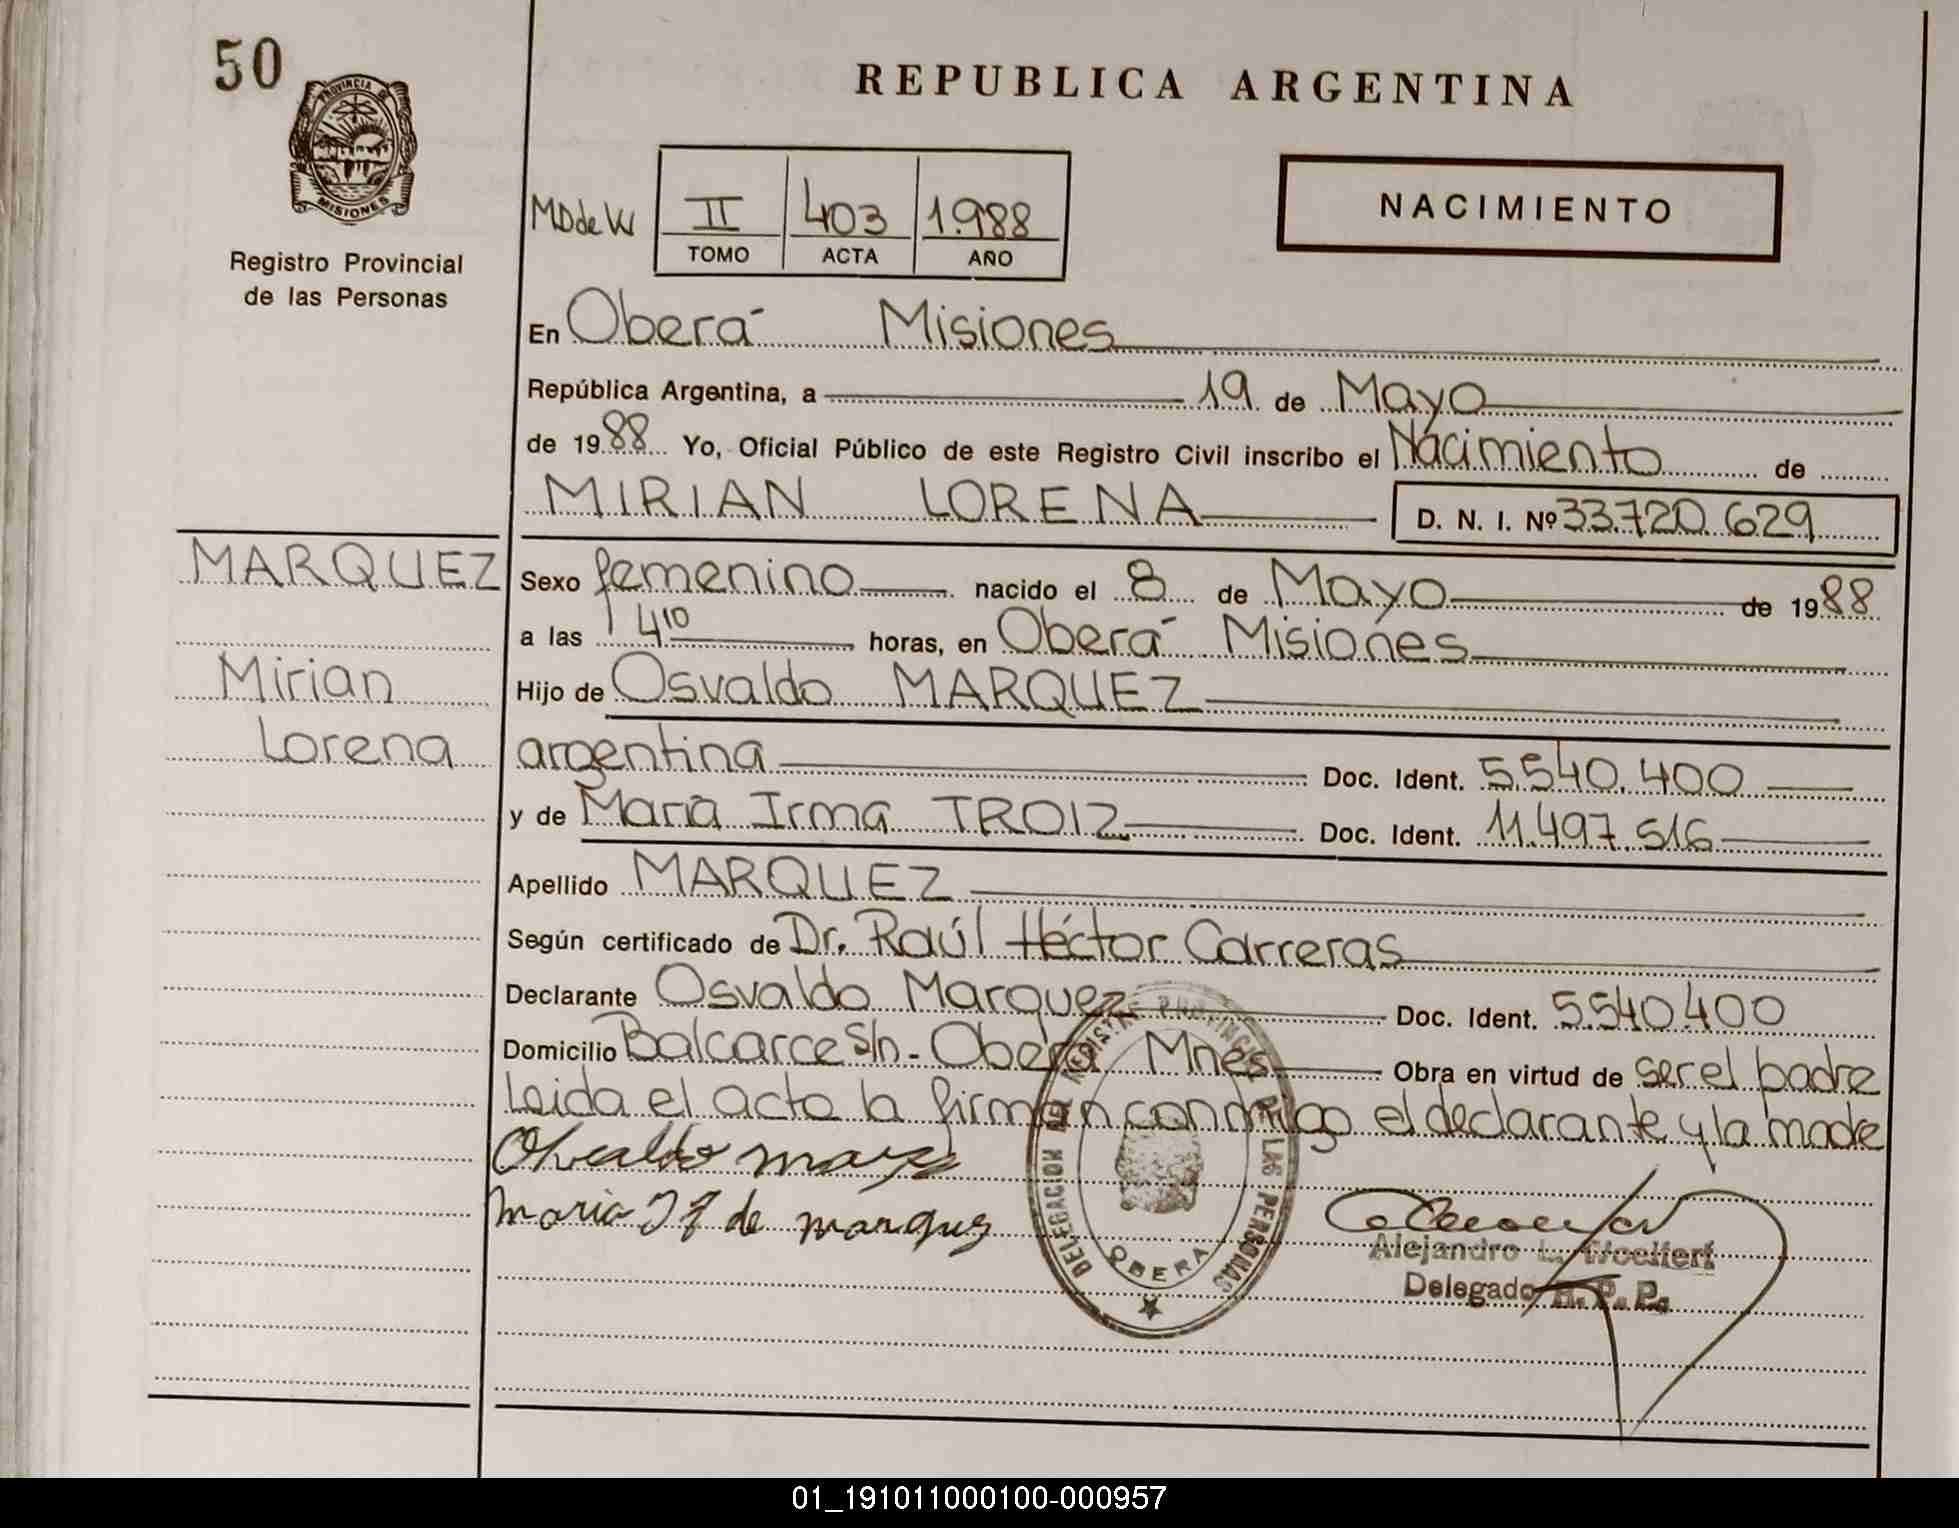 50
PROVINCIA DE
MISIONES
Registro Provincial
de las Personas
REPUBLICA ARGENTINA
MDdeW II 403 1.988
TOMO ACTA AÑO
NACIMIENTO
En Oberá Misiones
República Argentina, a 19 de Mayo
de 1988 Yo, Oficial Público de este Registro Civil inscribo el Nacimiento de
MIRIAN LORENA D. N. I. Nº 33.720.629
MARQUEZ
Mirian
Lorena
Sexo femenino nacido el 8 de Mayo de 1988
a las 14 10 horas, en Oberá Misiones
Hijo de Osvaldo MARQUEZ
argentina Doc. Ident. 5.540.400
y de María Irma TROIZ Doc. Ident. 11.497.516
Apellido MARQUEZ
Según certificado de Dr. Raúl Héctor Carreras
Declarante Osvaldo Marquez Doc. Ident. 5.540.400
Domicilio Balcarce s/n - Oberá Mnes Obra en virtud de ser el padre
Leida el acta la firman conmigo el declarante y la madre
Osvaldo
Maria de marquez
DELEGACION REGISTRO PROVINCIAL DE LAS PERSONAS
OBERA
Alejandro L. Woelfert
Delegado R. P. P.
01_191011000100-000957